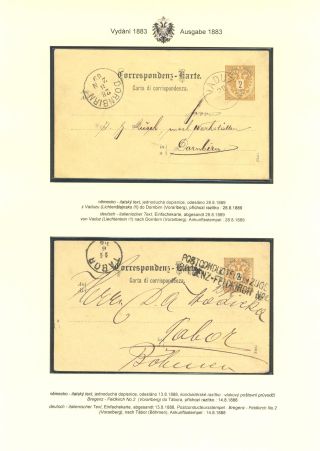 Vydání 1883
Ausgabe 1883
DORNBIRN
VADUZ
2
Correspondenz-Karte.
Carta di corrispondenza.
Herrn
Dornbirn
německo - italský text, jednoduchá dopisnice, odesláno 28.8.1889
z Vaduz (Lichtenštejnsko !!!) do Dornbirn (Vorarlberg), příchozí razítko : 28.8.1889
deutsch - italienischer Text, Einfachekarte, abgesandt 28.8.1889
von Vaduz (Liechtenstein !!!) nach Dornbirn (Vorarlberg), Ankunftsstempel : 28.8.1889
TABOR
Correspondenz-Karte.
POSTCONDUCTEUR IM ZUGE
BREGENZ-FELDKIRCH No 2
Carta di corrispondenza.
Tabor
Böhmen
německo - italský text, jednoduchá dopisnice, odesláno 13.8.1888, konduktérské razítko - vlakový poštovní průvodčí
Bregenz - Feldkirch No.2 (Vorarlberg) do Tábora, příchozí razítko : 14.8.1888
deutsch - italienischer Text, Einfachekarte, abgesandt 13.8.1888, Postconducteurstempel - Bregenz - Feldkirch No.2
(Vorarlberg), nach Tábor (Böhmen), Ankunftsstempel : 14.8.1888